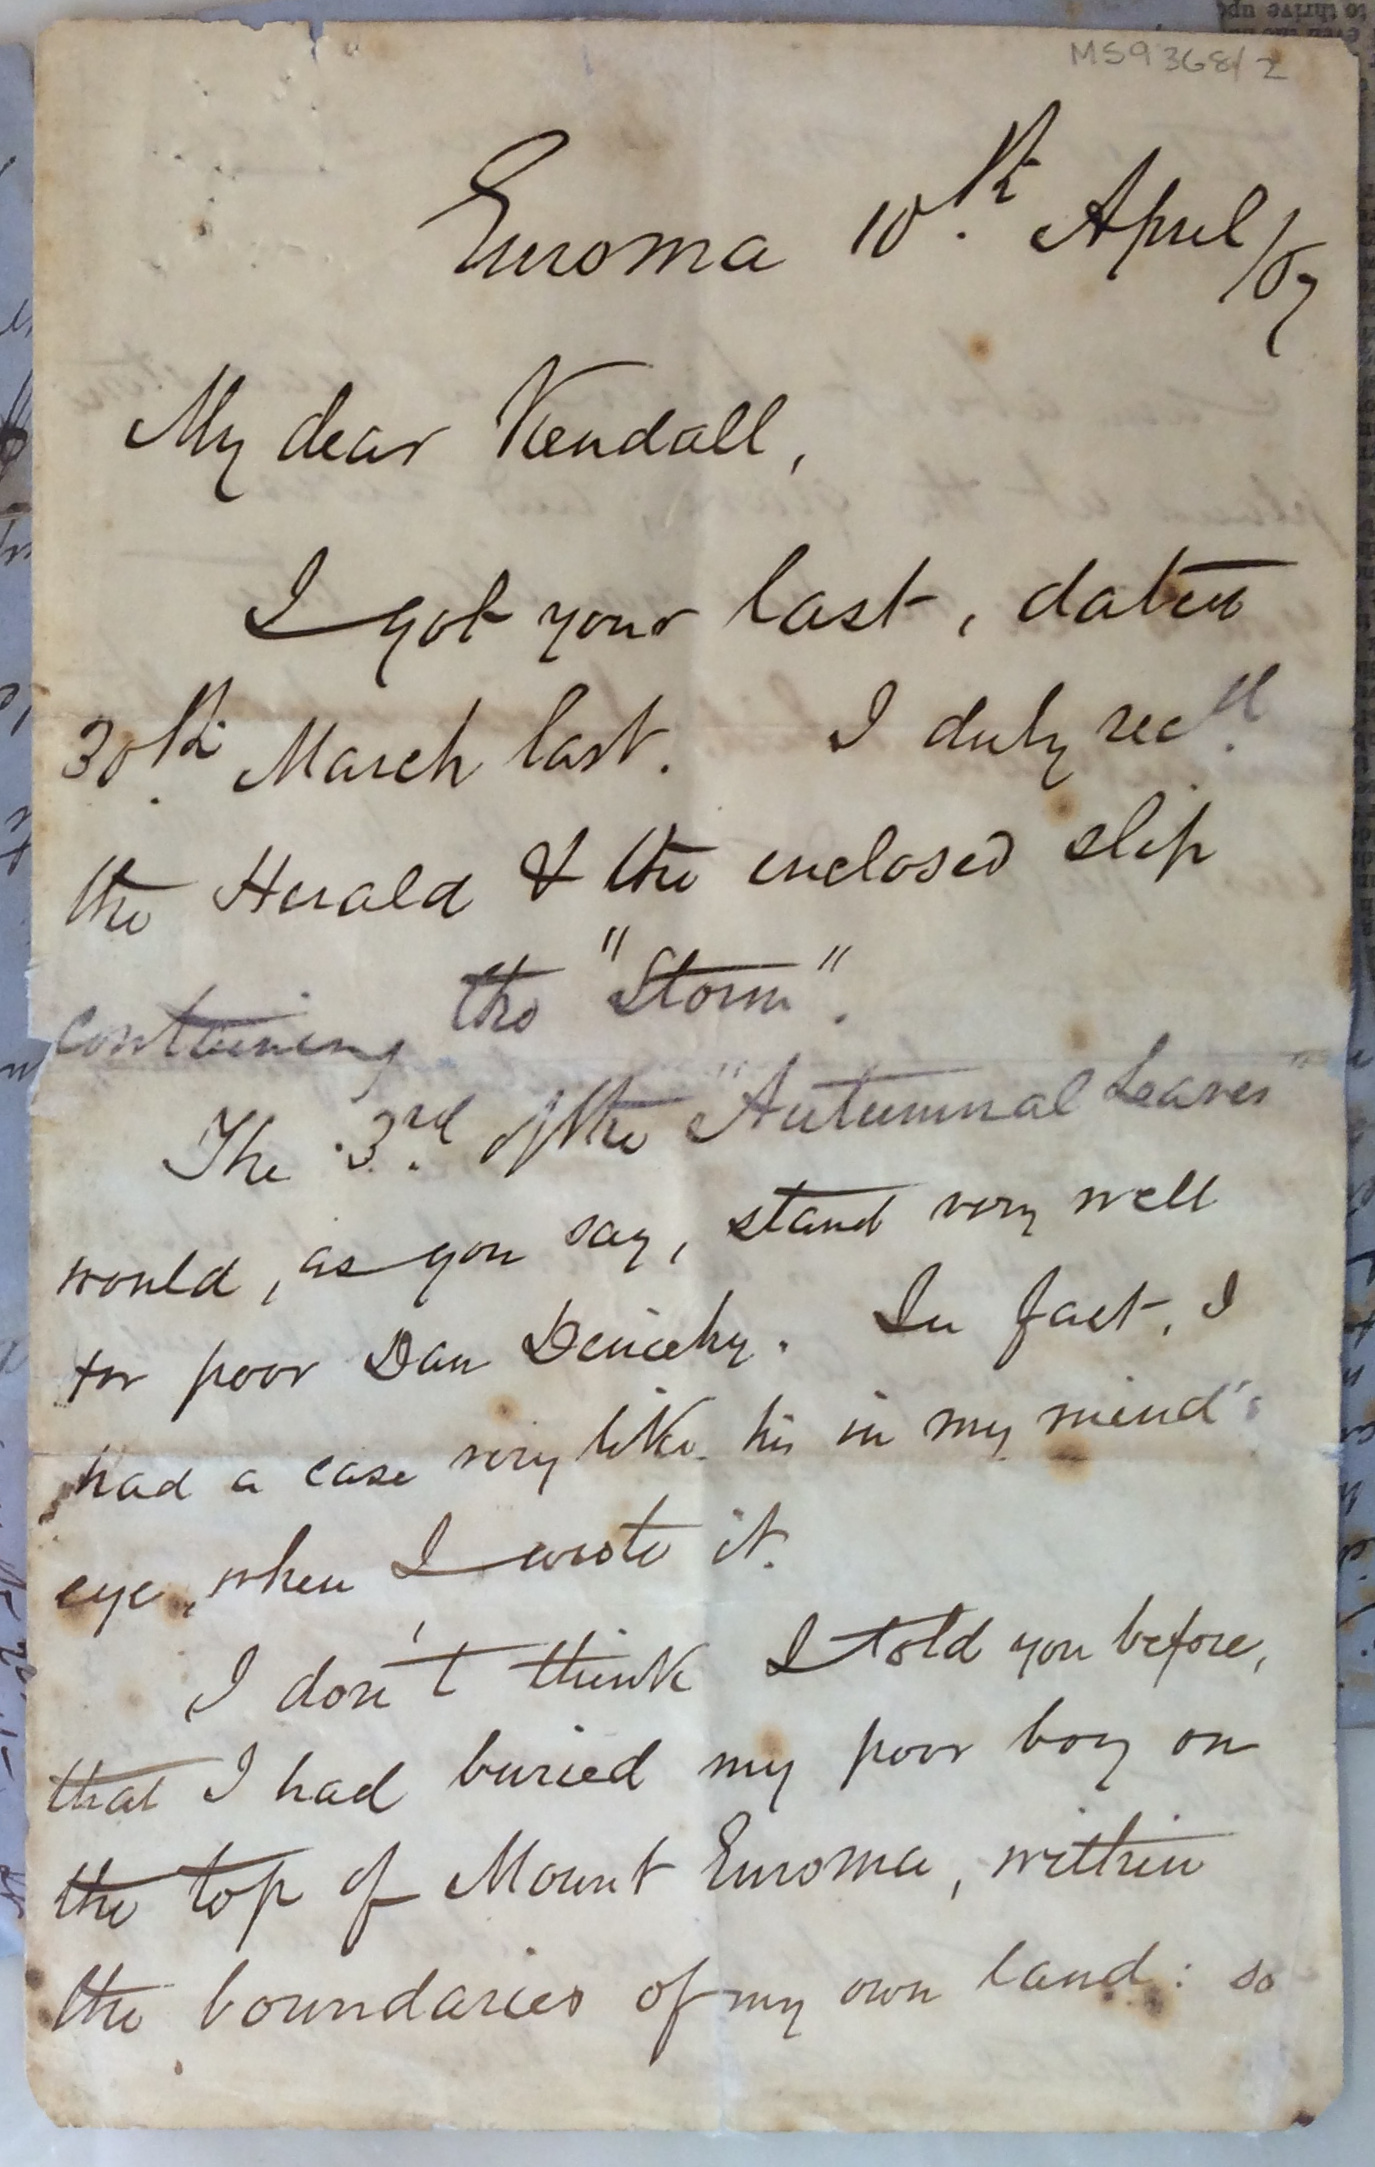 MS9368/2
Euroma 10th. April /67
My dear Kendall,
I got your last, dated
30th. March last. I duly recd.
the Herald & the enclosed slip
containing the "Storm".
The 3rd. of the "Autumnal Leaves"
would, as you say, stand very well
for poor Dan Deniehy. In fact, I
had a case very like his in my mind's
eye, when I wrote it.
I don't think I told you before,
that I had buried my poor boy on
the top of Mount Euroma, within
the boundaries of my own land: so
to thrive upo